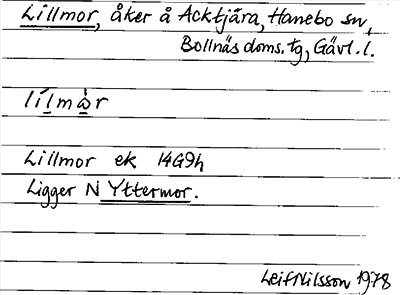 Lillmor, åker å Acktjära, Hanebo sn,
Bollnäs doms. tg, Gävl. l.
lílmòr
Lillmor ek 14G9h
Ligger N Yttermor.
Leif Nilsson 1978